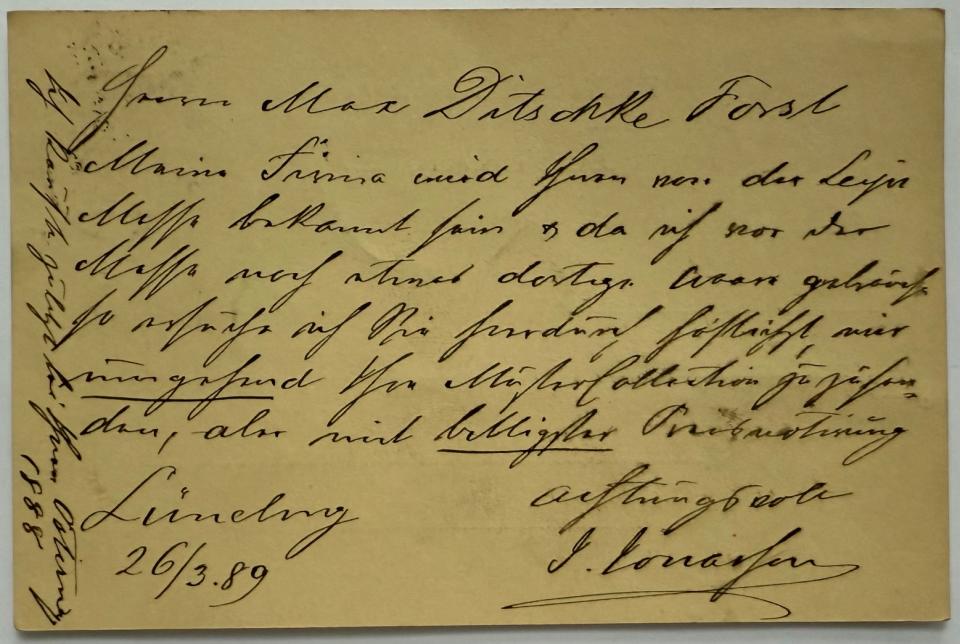 Herrn Max Ditschke Forst
Meine Firma wird Ihnen von der Leipz
Messe bekannt sein & da ich vor der
Messe noch etwas dortige Waare gebrauche
so ersuche ich Sie hierdurch höflichst, mir
umgehend Ihre Muster Collection zuzusen-
den, aber mit billigster Preisnotirung
Achtungsvoll
Lüneburg
J. Jonassohn
26/3.89
kaufte zuletzt bei Ihnen Ostern
1888